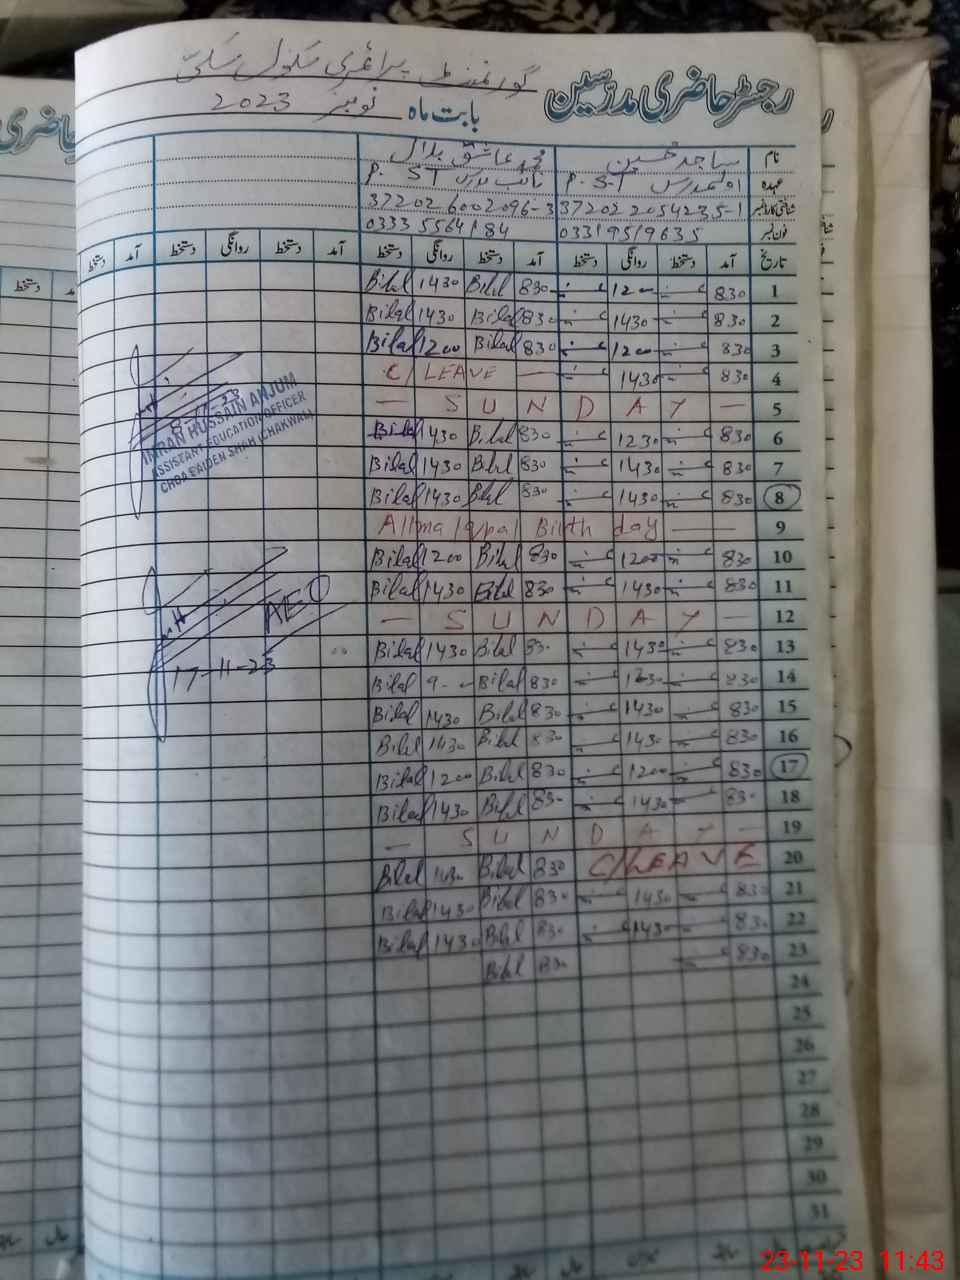 رجسٹر حاضری مدرسین
گورنمنٹ پرائمری سکول
بابت ماہ نومبر 2023
نام ساجد حسین محمد عاشق بلال
عہدہ اول مدرس P.S.T نائب مدرس P.ST
شناختی کارڈ نمبر 37202 2054235-1 372026002096-3
فون نمبر 03319519635 03335564184
تاریخ آمد دستخط روانگی دستخط آمد دستخط روانگی دستخط آمد دستخط روانگی دستخط آمد دستخط
1 830 1200 830 Bilal 1430 Bilal
2 830 1430 830 Bilal 1430 Bilal
3 830 1200 830 Bilal 1200 Bilal
4 830 1430 C/LEAVE
5 — SUNDAY —
6 830 1230 830 Bilal 1430 Bilal
7 830 1430 830 Bilal 1430 Bilal
8 830 1430 830 Bilal 1430 Bilal
9 Allma Iqbal Birth day
10 830 1200 830 Bilal 1200 Bilal
11 830 1430 830 Bilal 1430 Bilal
12 — SUNDAY —
13 830 1430 830 Bilal 1430 Bilal
14 830 1230 830 Bilal Bilal
15 830 1430 830 Bilal 1430 Bilal
16 830 1430 830 Bilal 1430 Bilal
17 830 1200 830 Bilal 1200 Bilal
18 830 1430 830 Bilal 1430 Bilal
19 — SUNDAY —
20 C/LEAVE 830 Bilal 1430 Bilal
21 830 1430 830 Bilal 1430 Bilal
22 830 1430 830 Bilal 1430 Bilal
23 830 830 Bilal
24
25
26
27
28
29
30
31
IMRAN HUSSAIN ANJUM
ASSISTANT EDUCATION OFFICER
CHOA SAIDEN SHAH (CHAKWAL)
AEO
17-11-23
23-11-23 11:43